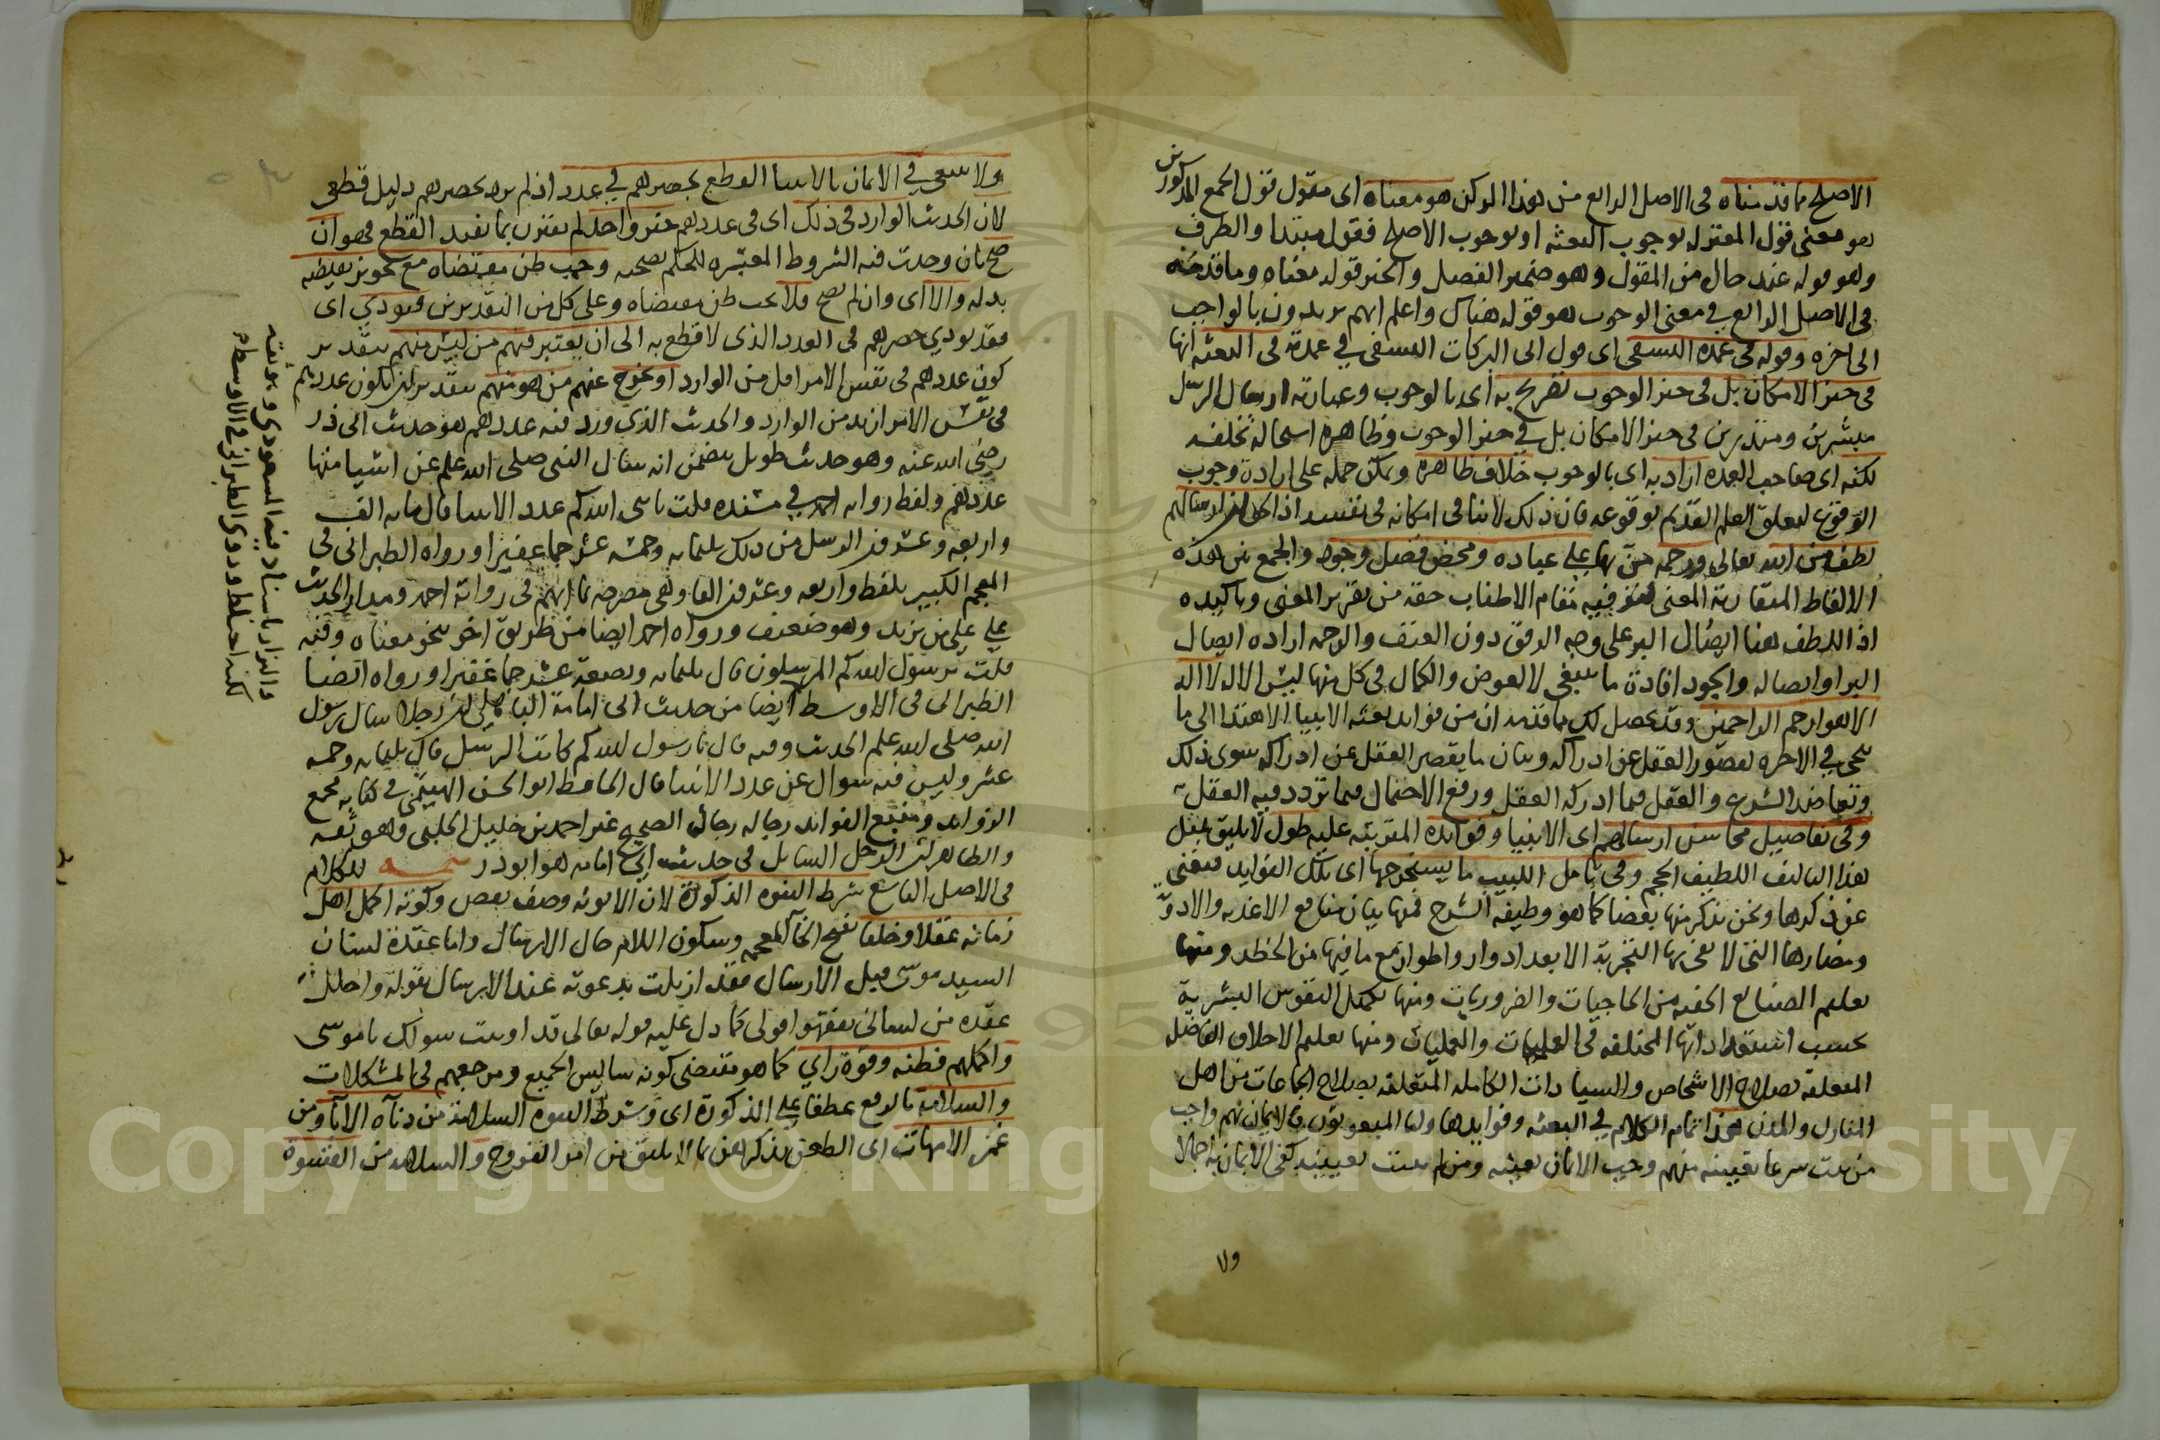 الاصلح ما قدمناه في الاصل الرابع من هذا الركن هو معناه اى مقول قول الجمع المذكورين
هو معنى قول المعتزلة بوجوب البعثة او بوجوب الاصلح فقول مبتدا والظرف
وهو قوله عند حال من المقول وهو ضمير الفصل والخبر قوله معناه وما قدمته
في الاصل الرابع في معنى الوجوب هو قوله هناك واعلم انهم يريدون بالواجب
الى اخره وقوله في عمدة النسفي اى قول ابى البركات النسفي في عمدته في البعثة انها
في حيز الامكان بل في حيز الوجوب تصريح به اى بالوجوب وعبارته ارسال الرسل
مبشرين ومنذرين في حيز الامكان بل في حيز الوجوب وظاهره استحالة تخلفه
لكنه اى صاحب العمدة اراد به اى بالوجوب خلاف ظاهره ويمكن حمله على ارادة وجوب
الوقوع لتعلق العلم القديم بوقوعه فان ذلك لا ينافي امكانه في نفسه اذا كان ارسالهم
لطف من الله تعالى ورحمة من بها على عباده ومحض فضل وجود والجمع بين هذه
الالفاظ المتقاربة المعنى لمقام الاطناب حقه من تقرير المعنى وتاكيده
اذ اللطف هنا ايصال البر على وجه الرفق دون العنف والرحمة ارادة ايصال
البر او ايصاله والجود افادة ما ينبغي لا لعوض والكمال في كل منها ليس الا له لا اله
الا هو ارحم الراحمين وقد تحصل لك مما قدمه ان من فوايد بعثة الانبيا الاهتدا الى ما
ينجي في الاخرة لقصور العقل عن ادراكه وبيان ما يقصر العقل عن ادراكه سوى ذلك
وتعاضد الشرع والعقل فيما ادركه العقل ورفع الاحتمال فيما تردد فيه العقل
وفي تفاصيل محاسن ارسالهم اى الانبيا وفوايده المترتبة عليه طول لا يليق بمثل
هذا التاليف اللطيف الحجم وفي تامل اللبيب ما يستخرجها اى تلك الفوايد فيغني
عن ذكرها ونحن نذكر منها بعضا كما هو وظيفة الشرح فمنها بيان منافع الاغذية والادوية
ومضارها التي لا تفي بها التجربة الا بعد ادوار واطوار مع ما فيها من الخطر ومنها
تعليم الصنايع الخفية من الحاجيات والضروريات ومنها تكميل النفوس البشرية
بحسب استعداداتها المختلفة في العلميات والعمليات ومنها تعليم الاخلاق الفاضلة
المتعلقة بصلاح الاشخاص والسياسات الكاملة المتعلقة بصلاح الجماعات من اهل
المنازل والمدن هذا تمام الكلام في البعثة وفوايدها واما المبعوثون فالايمان بهم واجب
من ثبت شرعا تعيينه منهم وجب الايمان بعينه ومن لم يثبت تعيينه كفى الايمان به اجمالا
ولا
ولا ينبغي في الايمان بالانبيا القطع بحصرهم في عدد اذ لم يرد بحصرهم دليل قطعي
لان الحديث الوارد في ذلك اى في عددهم خبر واحد لم يقترن بما يفيد القطع فهو ان
صح بان وجدت فيه الشروط المعتبرة للحكم بصحته وجب ظن مقتضاه مع تجويز نقيضه
بدله والا اى وان لم يصح فلا يجب ظن مقتضاه وعلى كل من التقديرين فيودي اى
فقد يودي حصرهم في العدد الذي لا قطع به الى ان يعتبر فيهم من ليس منهم بتقدير
كون عددهم في نفس الامر اقل من الوارد او يخرج عنهم من هو منهم بتقدير ان يكون عددهم
في نفس الامر ازيد من الوارد والحديث الذي ورد فيه عددهم هو حديث ابى ذر
رضي الله عنه وهو حديث طويل يتضمن انه سال النبي صلى الله عليه وسلم عن اشيا منها
عددهم ولفظ رواية احمد في مسنده قلت يا نبي الله كم عدد الانبيا قال ماية الف
واربعة وعشرون الرسل من ذلك ثلثماية وخمسة عشر جما غفيرا ورواه الطبراني في
المعجم الكبير بلفظ واربعة وعشرون الفا وهي مصرحة بما ابهم في رواية احمد ومدار الحديث
على علي بن يزيد وهو ضعيف ورواه احمد ايضا من طريق اخر بنحو معناه وفيه
قلت يرسول الله كم المرسلون قال ثلثماية وبضعة عشر جما غفيرا ورواه ايضا
الطبراني في الاوسط ايضا من حديث ابى امامة الباهلي ان رجلا سال رسول
الله صلى الله عليه وسلم الحديث وفيه قال يا رسول الله كم كانت الرسل قال ثلثماية وخمسة
عشر وليس فيه سوال عن عدد الانبيا قال الحافظ ابو الحسن الهيثمي في كتابه مجمع
الزوايد ومنبع الفوايد رجاله رجال الصحيح غير احمد بن خليل الحلبي وهو ثقة
والظاهر ان الرجل السايل في حديث ابى امامة هو ابو ذر تتمة للكلام
في الاصل التاسع شرط النبوة الذكورة لان الانوثة وصف نقص وكونه اكمل اهل
زمانه عقلا وخلقا بفتح الخا المعجمة وسكون اللام حال الارسال واما عقدة لسان
السيد موسى قبل الارسال فقد ازيلت بدعوته عند الارسال بقوله واحلل
عقدة من لساني يفقهوا قولي كما دل عليه قوله تعالى قد اوتيت سولك يا موسى
واكملهم فطنة وقوة راي كما هو مقتضى كونه سايس الجميع ومرجعهم في المشكلات
والسلامة بالرفع عطفا على الذكورة اى وشرط النبوة السلامة من دناة الابا ومن
غمز الامهات اى الطعن بذكرهن بما لا يليق من امر الفروج والسلامة من القسوة
والبزار باسناد فيه المسعودي وهو ثقة
لكنه اختلط وروى الطبراني في الاوسط